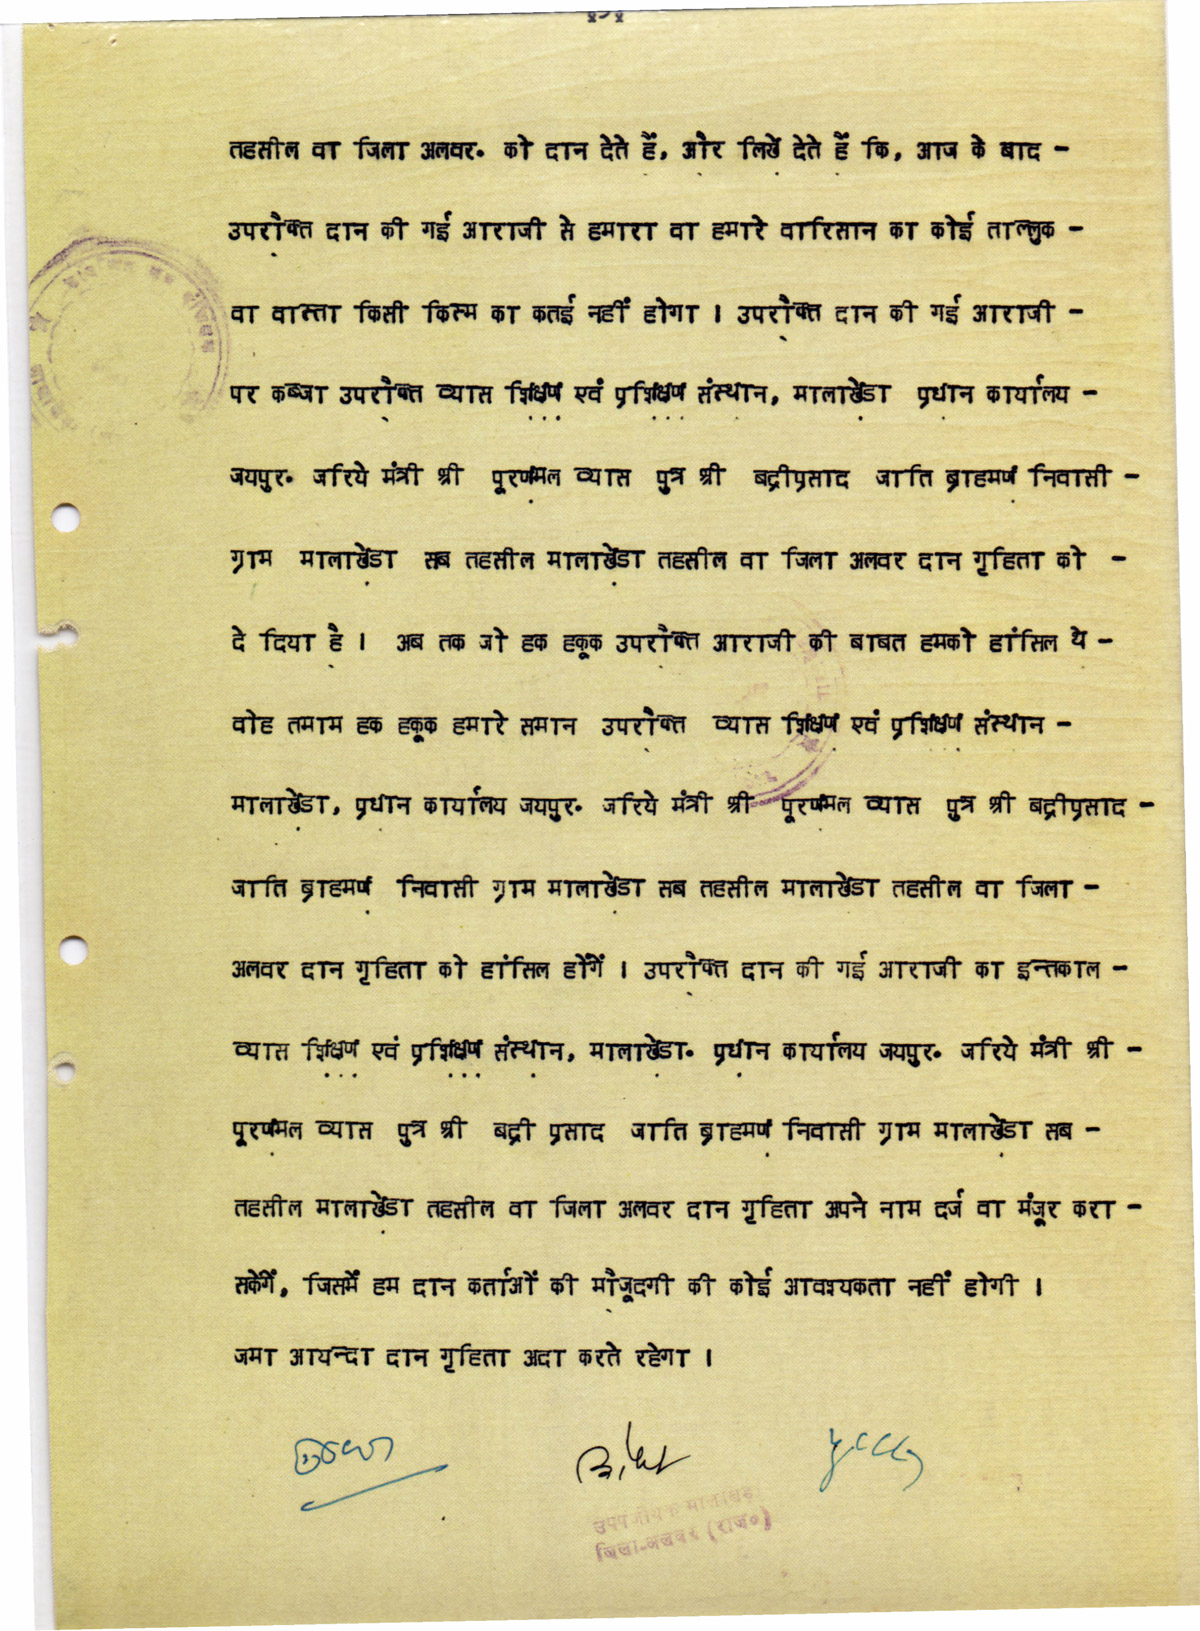 तहसील वा जिला अलवर. को दान देते हैं, और लिखें देते हैं कि, आज के बाद -
उपरोक्त दान की गई आराजी से हमारा वा हमारे वारिसान का कोई ताल्लुक -
वा वास्ता किसी किस्म का कतई नहीं होगा । उपरोक्त दान की गई आराजी -
पर कब्जा उपरोक्त व्यास शिक्षण एवं प्रशिक्षण संस्थान, मालाखेडा प्रधान कार्यालय -
जयपुर. जरिये मंत्री श्री पूरणमल व्यास पुत्र श्री बद्रीप्रसाद जाति ब्राहमण निवासी -
ग्राम मालाखेडा सब तहसील मालाखेडा तहसील वा जिला अलवर दान गृहिता को -
दे दिया है । अब तक जो हक हकूक उपरोक्त आराजी की बाबत हमको हांसिल थे -
वोह तमाम हक हकूक हमारे समान उपरोक्त व्यास शिक्षण एवं प्रशिक्षण संस्थान -
मालाखेडा, प्रधान कार्यालय जयपुर. जरिये मंत्री श्री पूरणमल व्यास पुत्र श्री बद्रीप्रसाद -
जाति ब्राहमण निवासी ग्राम मालाखेडा सब तहसील मालाखेडा तहसील वा जिला -
अलवर दान गृहिता को हांसिल होंगें । उपरोक्त दान की गई आराजी का इन्तकाल -
व्यास शिक्षण एवं प्रशिक्षण संस्थान, मालाखेडा. प्रधान कार्यालय जयपुर. जरिये मंत्री श्री -
पूरणमल व्यास पुत्र श्री बद्री प्रसाद जाति ब्राहमण निवासी ग्राम मालाखेडा सब -
तहसील मालाखेडा तहसील वा जिला अलवर दान गृहिता अपने नाम दर्ज वा मंजूर करा -
सकेगें, जिसमें हम दान कर्ताओं की मौजूदगी की कोई आवश्यकता नहीं होगी ।
जमा आयन्दा दान गृहिता अदा करते रहेगा ।
उपपंजीयक मालाखेड़ा
जिला-अलवर (राज०)